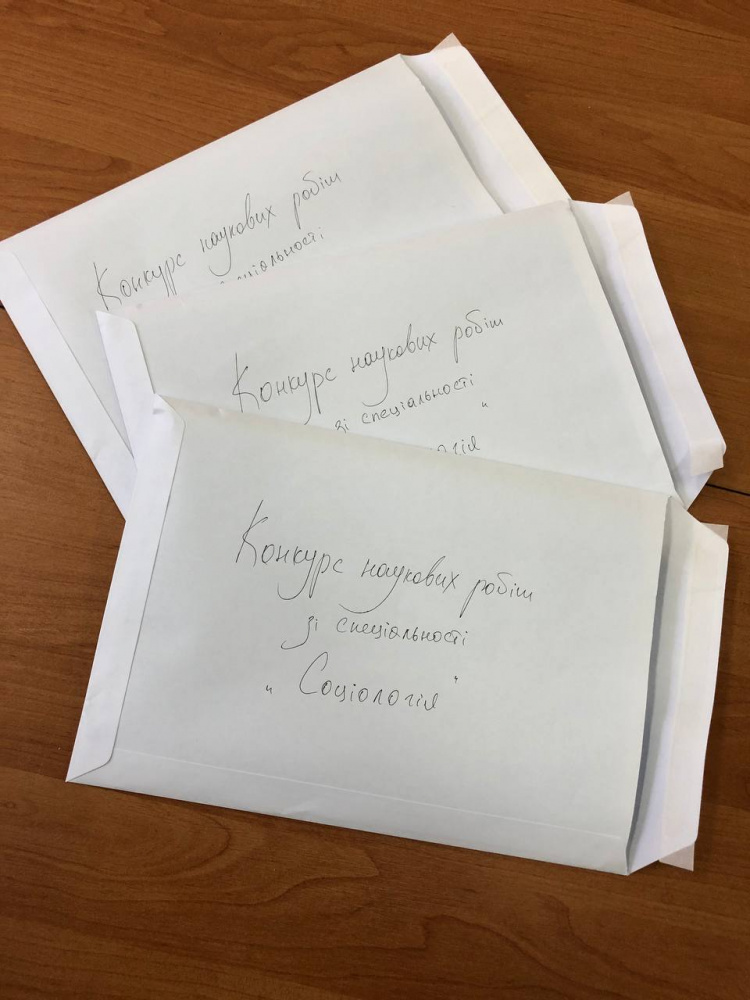 Конкурс наукових робіт
спеціальності
Конкурс наукових робіт
зі спеціальності
"
Конкурс наукових робіт
зі спеціальності
„ Соціологія "